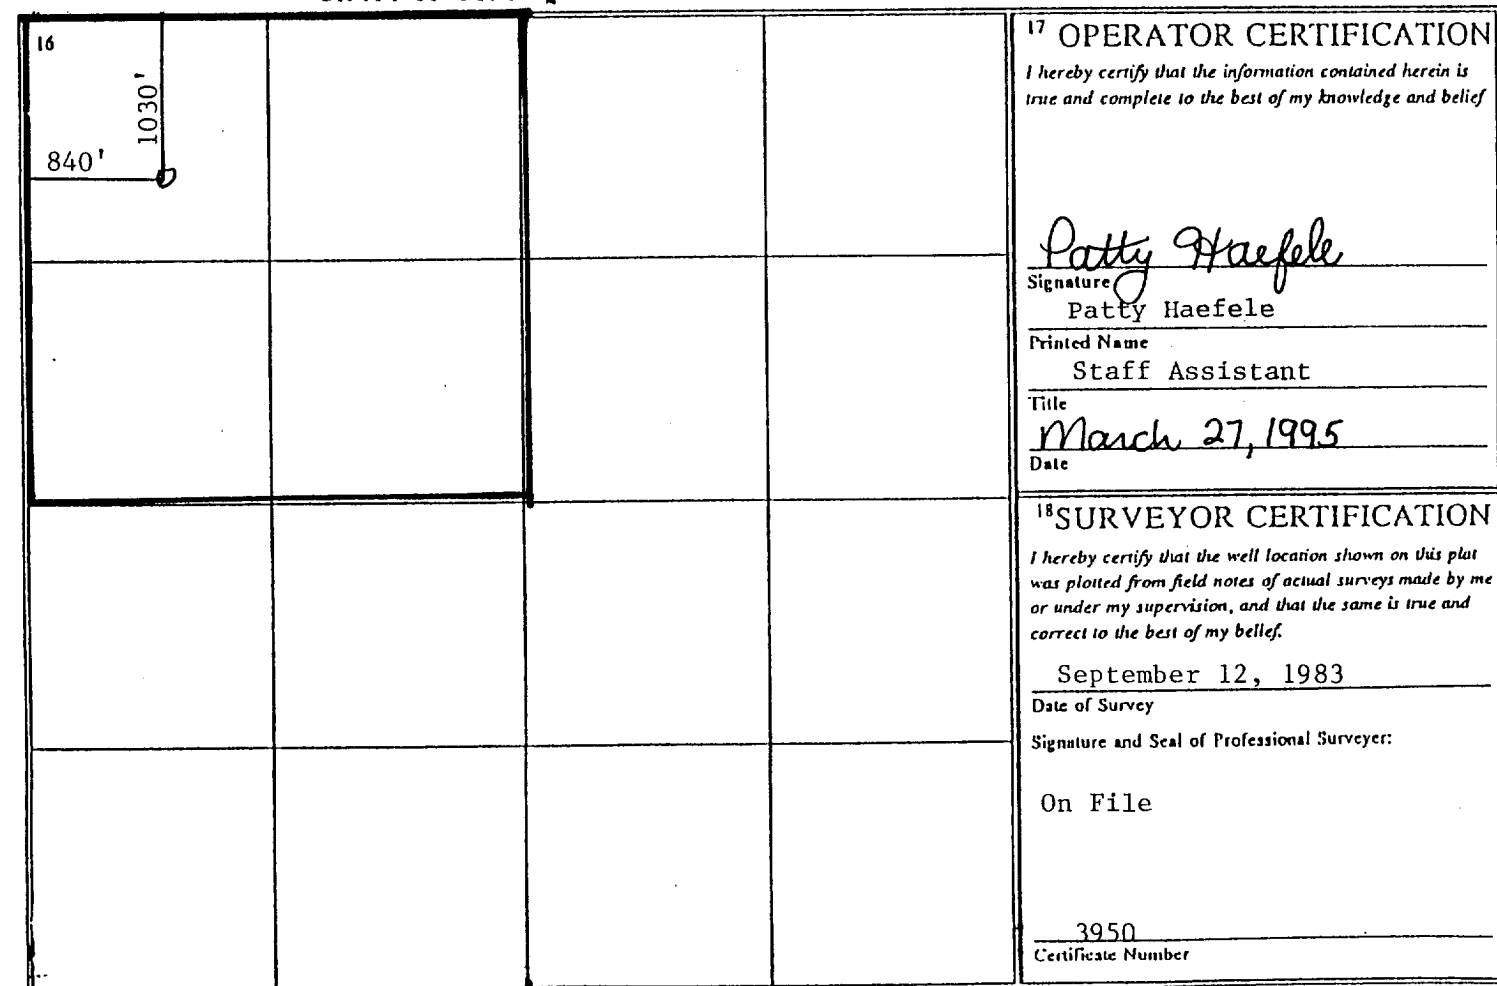 16
1030'
840'
17 OPERATOR CERTIFICATION
I hereby certify that the information contained herein is
true and complete to the best of my knowledge and belief
Patty Haefele
Signature
Patty Haefele
Printed Name
Staff Assistant
Title
March 27, 1995
Date
18 SURVEYOR CERTIFICATION
I hereby certify that the well location shown on this plat
was plotted from field notes of actual surveys made by me
or under my supervision, and that the same is true and
correct to the best of my belief.
September 12, 1983
Date of Survey
Signature and Seal of Professional Surveyer:
On File
3950
Certificate Number